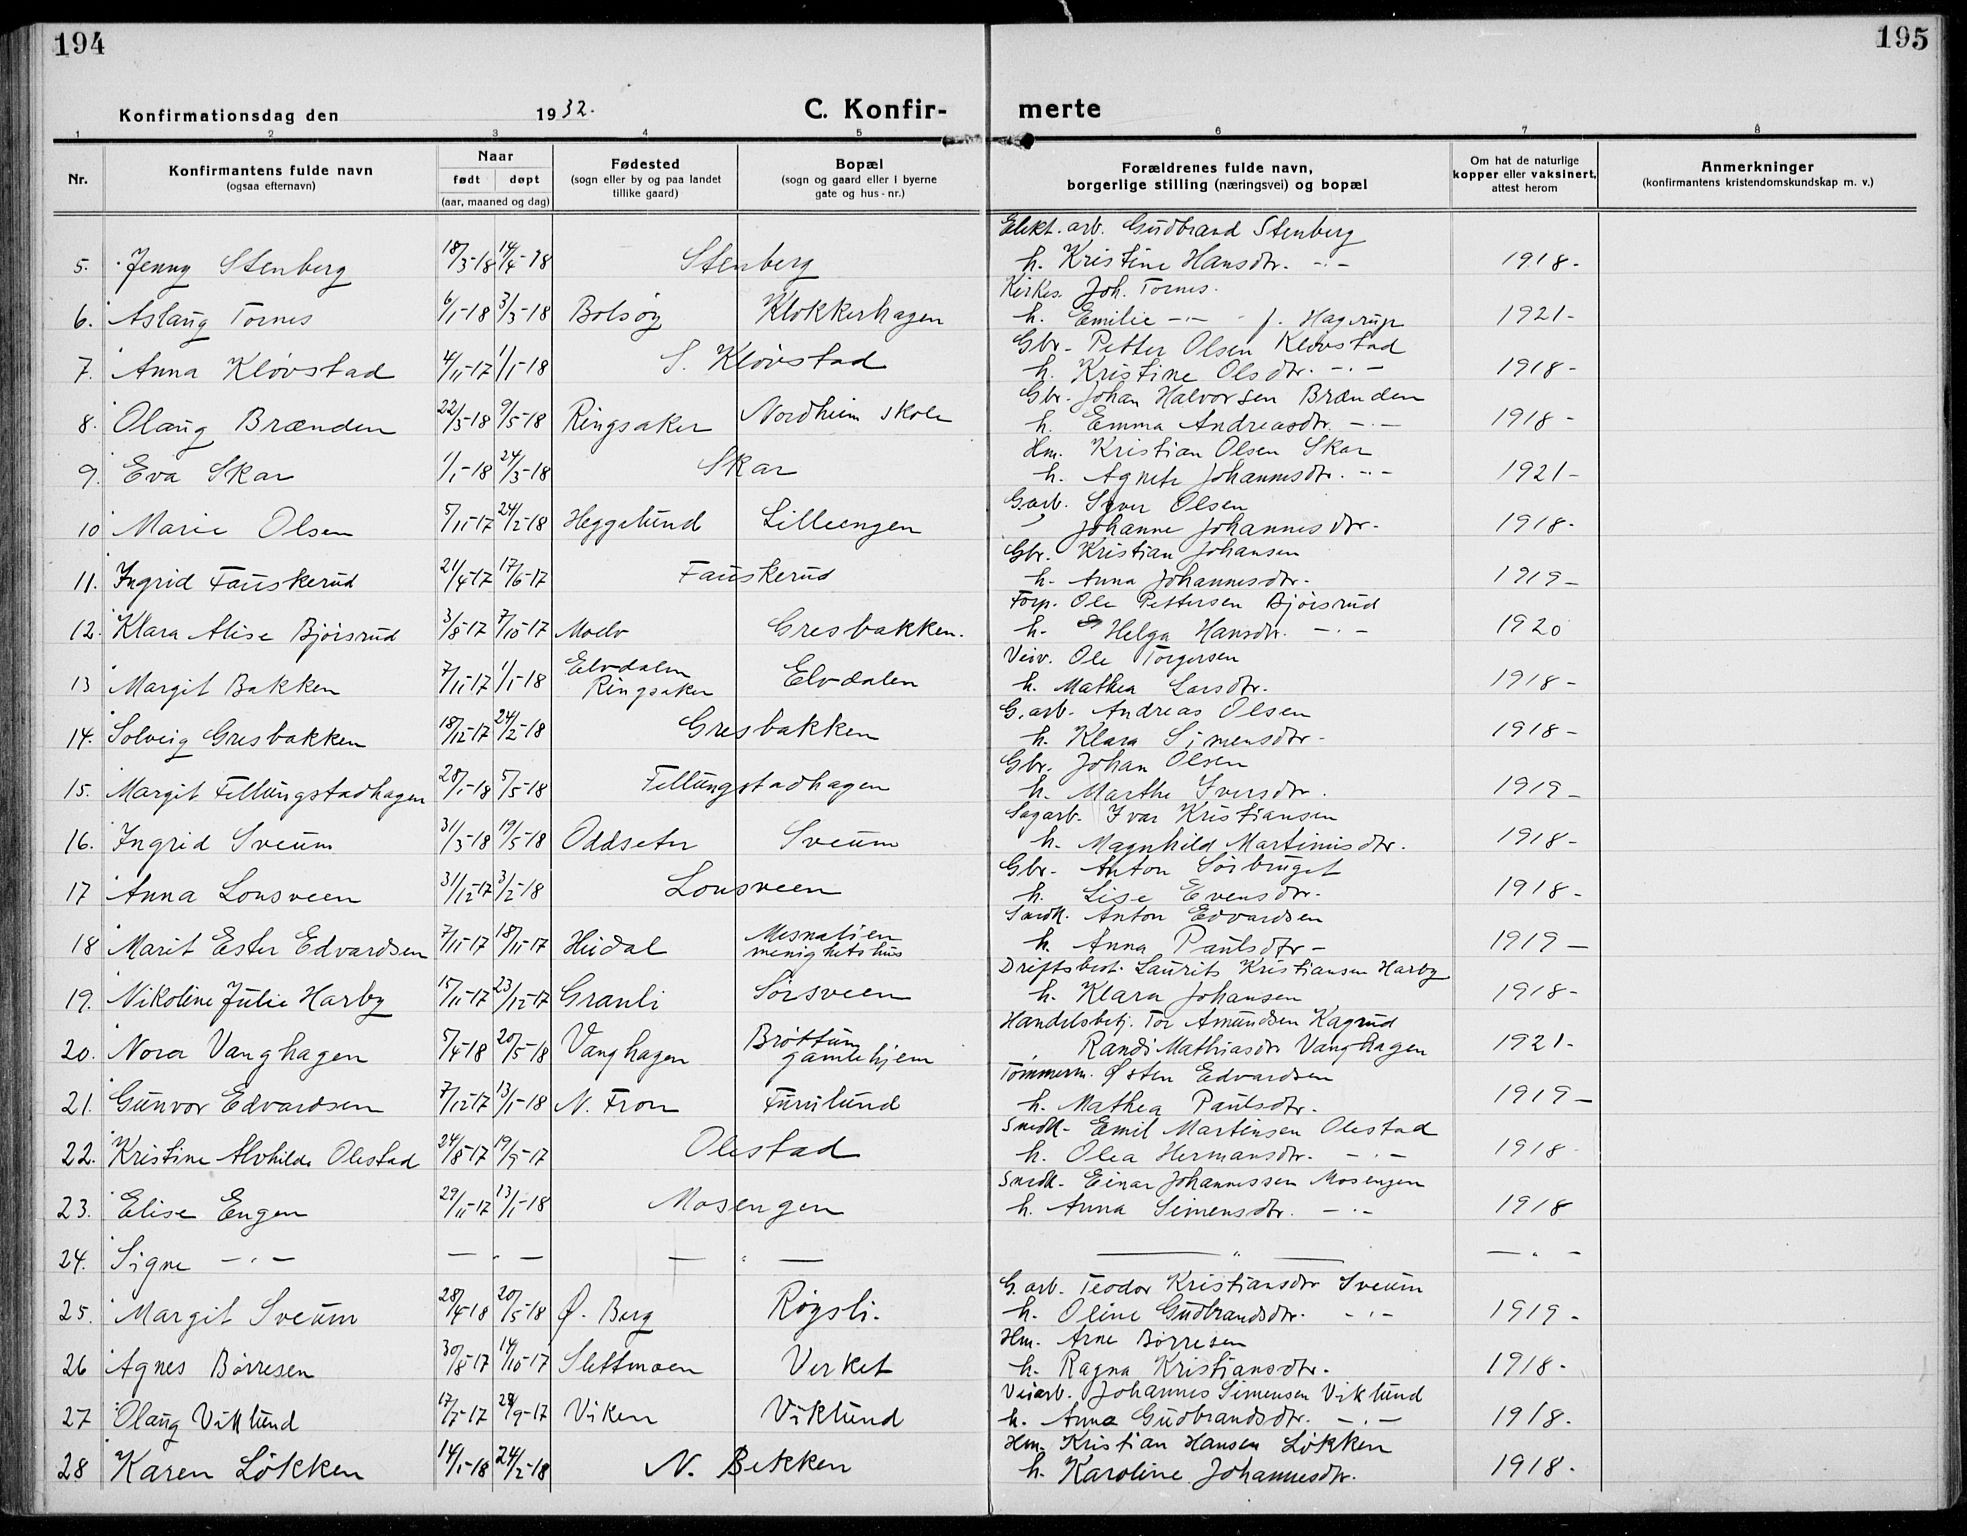 194
195
Konfirmationsdag den 1932.
C. Konfir- merte
1 2 3 4 5 6 7 8
Nr.
Konfirmantens fulde navn
(ogsaa efternavn)
Naar
født døpt
(aar, maaned og dag)
Fødested
(sogn eller by og paa landet
tillike gaard)
Bopæl
(sogn og gaard eller i byerne
gate og hus-nr.)
Forældrenes fulde navn,
borgerlige stilling (næringsvei) og bopæl
Om hat de naturlige
kopper eller vaksinert,
attest herom
Anmerkninger
(konfirmantens kristendomskundskap m. v.)
Elekt. arb. Gudbrand Stenberg
5. Jenny Stenberg 18/3-18 14/4-18 Stenberg h. Kristine Hansdtr. -·- 1918-
Kirkes. Joh. Tornes.
6. Aslaug Tornes 6/1-18 3/3-18 Bolsøy Klokkerhagen h. Emilie -·- f. Hagerup 1921-
Gbr. Petter Olsen Kløvstad
7. Anna Kløvstad 4/11-17 1/1-18 S. Kløvstad h. Kristine Olsdtr. -·- 1918-
Gbr. Johan Halvorsen Brænden
8. Olaug Brænden 22/3-18 9/5-18 Ringsaker Nordheim skole h. Emma Andreasdtr. -·- 1918-
Hm. Kristian Olsen Skar
9. Eva Skar 1/1-18 24/3-18 Skar h. Agnete Johannesdtr. -·- 1921-
G.arb. Syver Olsen
10 Marie Olsen 5/11-17 24/2-18 Heggelund Lilleengen Johanne Johannesdtr. 1918-
Gbr. Kristian Johansen
11. Ingrid Fauskerud 21/4-17 17/6-17 Fauskerud h. Anna Johannesdtr. 1919-
Forp. Ole Pettersen Bjørsrud
12. Klara Alise Bjørsrud 3/8-17 7/10-17 Moelv Gresbakken. h. Helga Hansdtr. -·- 1920
Veiv. Ole Torgersen
13 Margit Bakken 7/11-17 1/1-18 Elvdalen Ringsaker Elvdalen h. Mathea Larsdtr. 1918-
G.arb. Andreas Olsen
14. Solveig Gresbakken 18/12-17 24/2-18 Gresbakken h. Klara Simensdtr. 1918-
Gbr. Johan Olsen
15. Margit Fellungstadhagen 28/1-18 5/5-18 Fellungstadhagen h. Marthe Iversdtr. 1919-
Sagarb. Ivar Kristiansen
16. Ingrid Sveum 31/3-18 19/5-18 Oddseter Sveum h. Magnhild Martinusdtr. 1918-
Gbr. Anton Sørbruget
17 Anna Lonsveen 31/12-17 3/2-18 Lonsveen h. Lise Evensdtr. 1918-
Snedk. Anton Edvardsen
18 Marit Ester Edvardsen 7/11-17 18/11-17 Heidal Mesnalien menighetshus h. Anna Paulsdtr- 1919-
Driftsbest. Laurits Kristiansen Harby
19. Nikoline Julie Harby 15/11-17 23/12-17 Granli Sørsveen h. Klara Johansen 1918-
Handelsbetj. Tor Amundsen Kagrud
20. Nora Vanghagen 5/4-18 20/5-18 Vanghagen Brøttum gamlehjem Randi Mathiasdtr Vanghagen 1921-
Tømmerm. Østen Edvardsen
21. Gunvor Edvardsen 7/12-17 13/1-18 N. Fron Furulund h. Mathea Paulsdtr. 1919-
Snedk. Emil Martinsen Olestad
22. Kristine Alvhilde Olestad 24/8-17 19/9-17 Olestad h. Olea Hermansdtr. -·- 1918
Snedk. Einar Johannessen Mosengen
23. Elise Engen 29/11-17 13/1-18 Mosengen h. Anna Simensdtr. -·- 1918
24. Signe -·- -·- -·- -"- -·-
G.arb. Teodor Kristiansdtr Sveum
25. Margit Sveum 28/4-18 20/5-18 Ø. Berg Røysli. h. Oline Gudbrandsdtr. -·- 1919-
Hm. Arne Børresen
26 Agnes Børresen 30/8-17 14/10-17 Slettmoen Verket h. Ragna Kristiansdtr. 1918-
Veiarb. Johannes Simensen Viklund
27 Olaug Viklund 17/7-17 29/9-17 Viken Viklund h. Anna Gudbrandsdtr. -·- 1918.
Hm. Kristian Hansen Løkken
28 Karen Løkken 14/1-18 24/2-18 N. Bekken h. Karoline Johannesdtr. 1918.